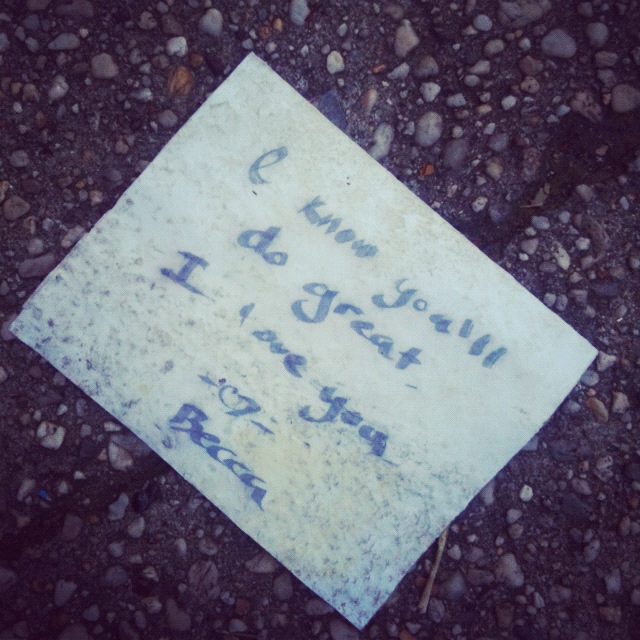 I know you'll
do great
I love you